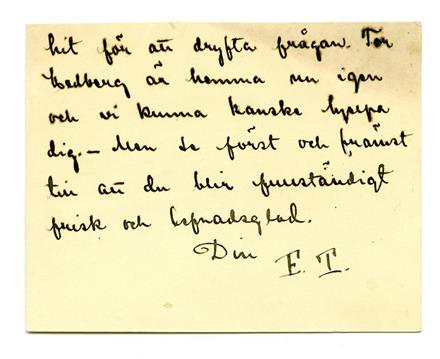 hit för att dryfta frågan. Tor
Hedberg är hemma nu igen
och vi kunna kanske hjelpa
dig. – Men se först och främst
till att du blir fullständigt
frisk och lefnadsglad.
Din E. T.